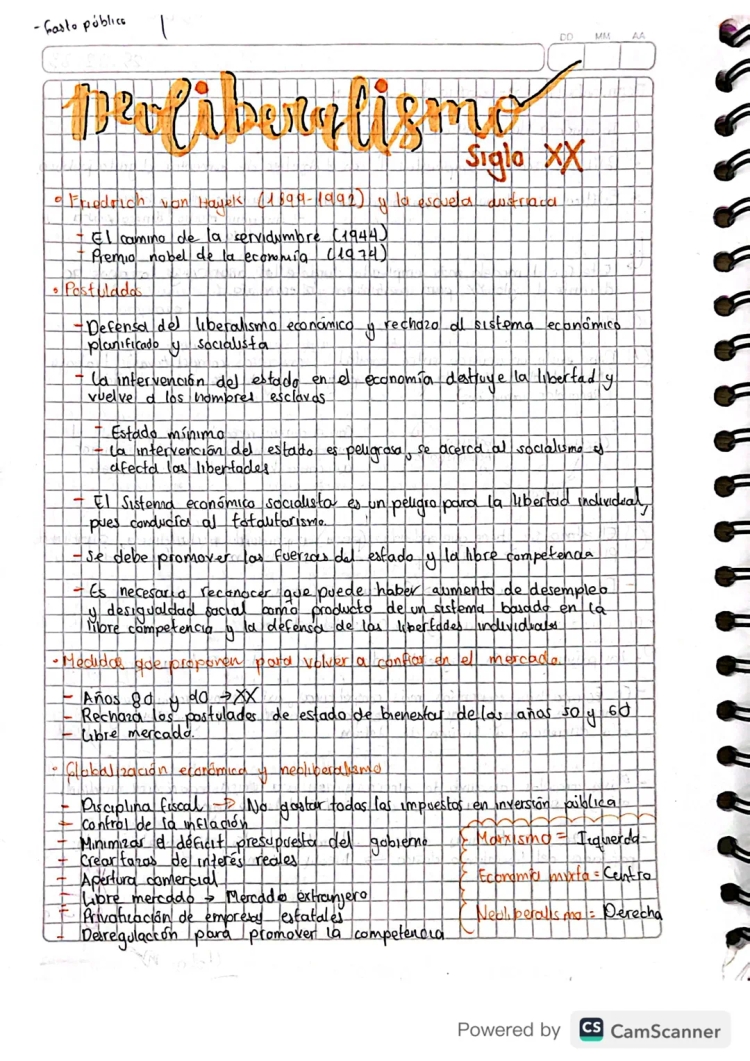 - Gasto público
DD MM AA
Neoliberalismo
Siglo XX
• Friedrich von Hayek (1899-1992) y la escuela austriaca
- El camino de la servidumbre (1944)
- Premio nobel de la economía (1974)
• Postulados
- Defensa del liberalismo económico y rechazo al sistema económico
planificado y socialista
- La intervención del estado en el economía destruye la libertad y
vuelve a los hombres esclavos
- Estado mínimo
- La intervención del estado es peligrosa, se acerca al socialismo y
afecta las libertades
- El Sistema económico socialista es un peligro para la libertad individual,
pues conducía al totalitarismo.
- Se debe promover las fuerzas del estado y la libre competencia
- Es necesario reconocer que puede haber aumento de desempleo
y desigualdad social como producto de un sistema basado en la
libre competencia y la defensa de las libertades individuales
• Medidas que proponen para volver a confiar en el mercado.
- Años 80 y 90 → XX
- Rechaza los postulados de estado de bienestar de los años 50 y 60
- Libre mercado.
• Globalización económica y neoliberalismo
- Disciplina fiscal → No gastar todos los impuestos en inversión pública
- Control de la inflación
- Minimizar el déficit presupuesto del gobierno
- Crear tazas de interés reales
- Apertura comercial
- Libre mercado → Mercado extranjero
- Privatización de empresas estatales
- Desregulación para promover la competencia
Marxismo = Izquierda
Economía mixta = Centro
Neoliberalismo = Derecha
Powered by CS CamScanner